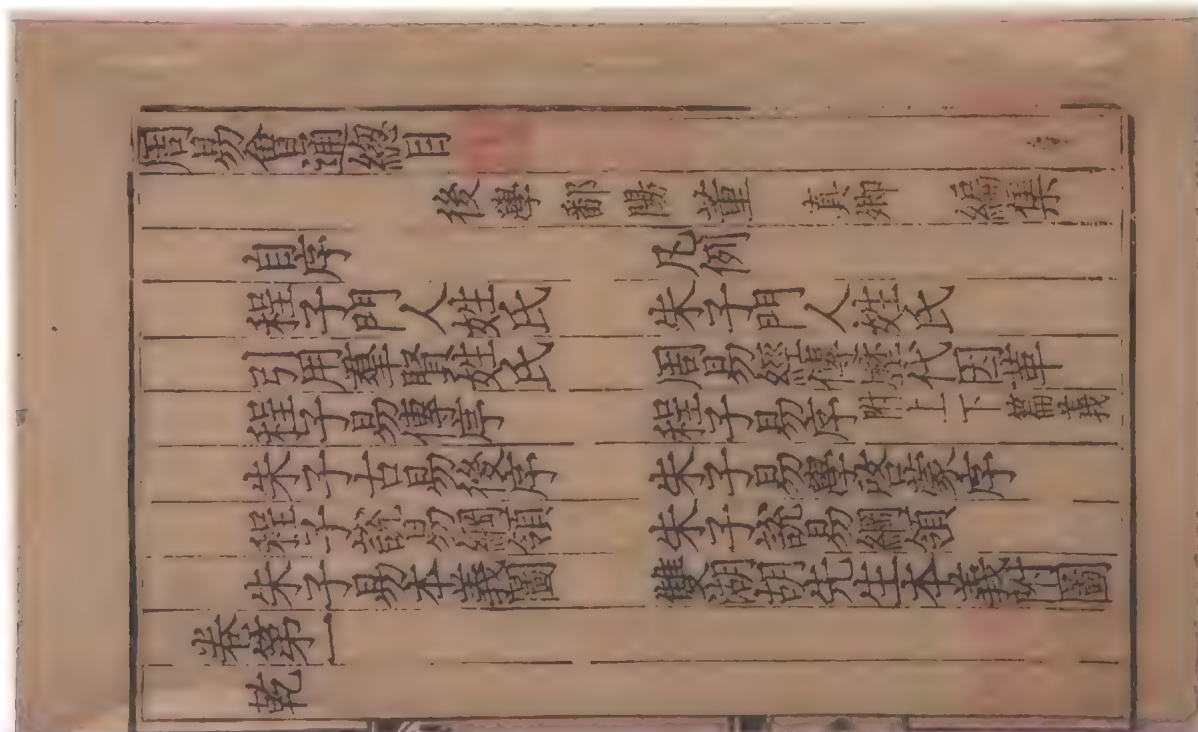 周易會通總目
後學 鄱陽 董 真卿 編集
自序 凡例
程子門人姓氏 朱子門人姓氏
引用羣賢姓氏 周易經傳歷代因革
程子易傳序 程子易序附上下篇義
朱子古易後序 朱子易學啓蒙序
程子說易綱領 朱子說易綱領
朱子易本義圖 雙湖胡先生本義附圖
卷第一
乾